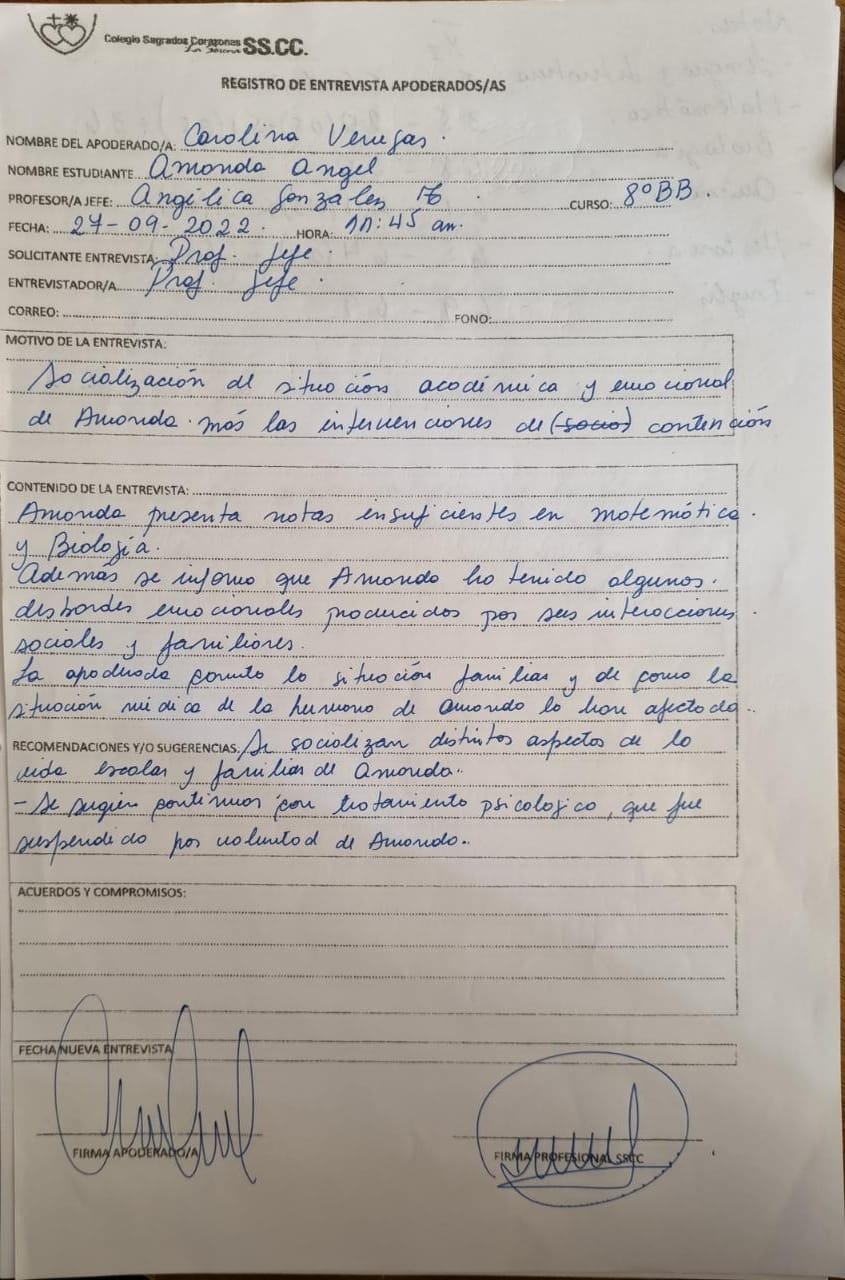 Colegio Sagrados Corazones SS.CC.
La Serena
REGISTRO DE ENTREVISTA APODERADOS/AS
NOMBRE DEL APODERADO/A: Carolina Venegas.
NOMBRE ESTUDIANTE Amanda Angel
PROFESOR/A JEFE: Angélica Gonzales CURSO: 8º BB.
FECHA: 27-09-2022. HORA: 11:45 am.
SOLICITANTE ENTREVISTA: Prof. Jefe.
ENTREVISTADOR/A Prof. Jefe.
CORREO: FONO:
MOTIVO DE LA ENTREVISTA:
Socialización de situación académica y emocional
de Amanda. más las intervenciones de (socio) contención
CONTENIDO DE LA ENTREVISTA:
Amanda presenta notas insuficientes en matemática.
y Biología.
Además se informo que Amanda ha tenido algunos.
desbordes emocionales producidos por sus interacciones.
sociales y familiares.
La apoderada comenta la situación familiar y de como la
situación médica de la hermana de Amanda la han afectado..
RECOMENDACIONES Y/O SUGERENCIAS: Se socializan distintos aspectos de la
vida escolar y familiar de Amanda.
- Se sugiere continuar con tratamiento psicologico, que fue
suspendido por voluntad de Amanda..
ACUERDOS Y COMPROMISOS:
FECHA NUEVA ENTREVISTA
FIRMA APODERADO/A FIRMA PROFESIONAL SSCC